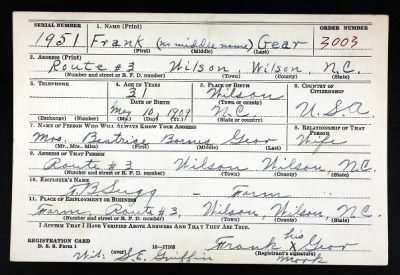 SERIAL NUMBER 1. NAME (Print) ORDER NUMBER
1951 Frank (no middle name) Gear 3003
(First) (Middle) (Last)
2. ADDRESS (Print)
Route #3 Wilson, Wilson N.C.
(Number and street or R. F. D. number) (Town) (County) (State)
3. TELEPHONE 4. AGE IN YEARS 5. PLACE OF BIRTH 6. COUNTRY OF CITIZENSHIP
31 Wilson
DATE OF BIRTH (Town or county)
May 10, 1909 N.C. U.S.A.
(Exchange) (Number) (Mo.) (Day) (Yr.) (State or country)
7. NAME OF PERSON WHO WILL ALWAYS KNOW YOUR ADDRESS 8. RELATIONSHIP OF THAT PERSON
Mrs. Beatrice Gear Wife
(Mr., Mrs., Miss) (First) (Middle) (Last)
9. ADDRESS OF THAT PERSON
Route #3 Wilson Wilson, N.C.
(Number and street or R. F. D. number) (Town) (County) (State)
10. EMPLOYER'S NAME
Sugg - Farm
11. PLACE OF EMPLOYMENT OR BUSINESS
Farm, Route #3, Wilson, Wilson, N.C.
(Number and street or R. F. D. number) (Town) (County) (State)
I AFFIRM THAT I HAVE VERIFIED ABOVE ANSWERS AND THAT THEY ARE TRUE.
his
REGISTRATION CARD Frank X Gear
D. S. S. Form 1 16—17105 (Registrant's signature) mark
Wit. S.E. Griffin